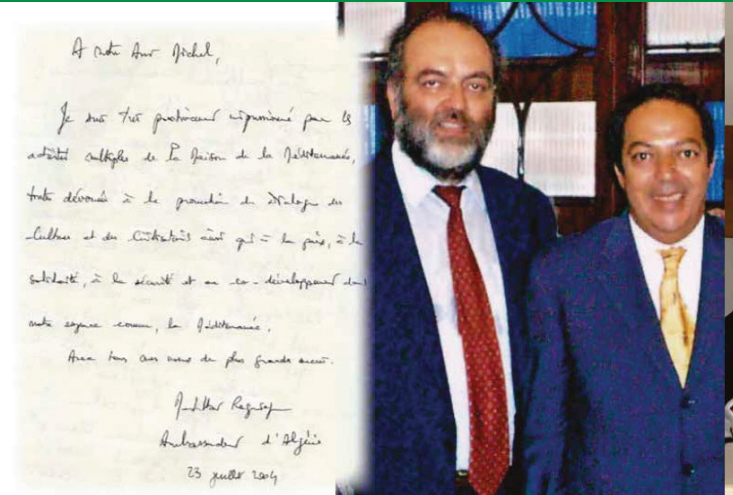 A notre Ami Michel,
Je suis très profondément impressionné par les
activités multiples de la Maison de la Méditerranée,
toutes dévouées à la promotion du Dialogue des
Cultures et des Civilisations ainsi qu'à la paix, à la
solidarité, à la sécurité et au co-développement dans
notre espace commun, la Méditerranée.
Avec tous mes vœux de plus grands succès.
Ambassadeur d'Algérie
23 juillet 2004